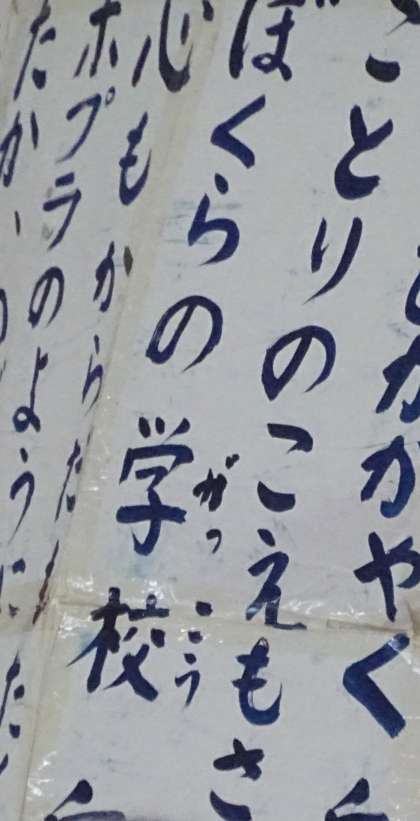 かがやく
ことりのこえもさ
がっこう
ぼくらの学校
心もからだ
ホプラのように
たか、